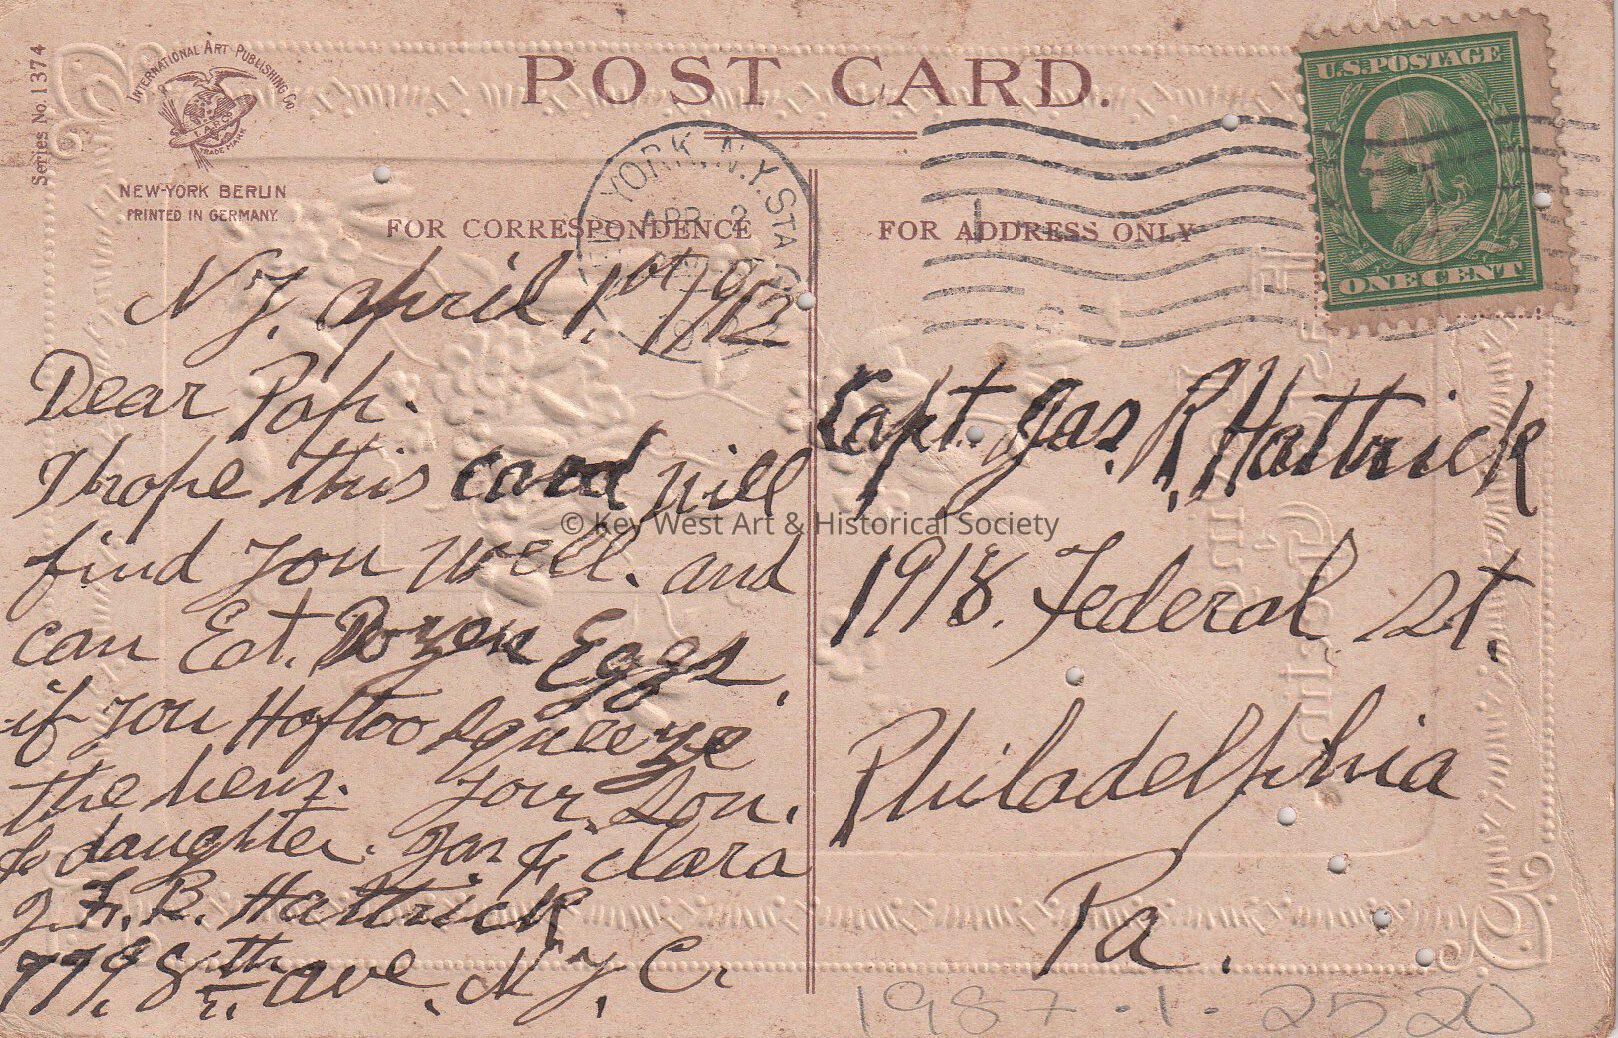 Series No. 1374
INTERNATIONAL ART PUBLISHING Co
I.A.P.Co
TRADE MARK
NEW-YORK BERLIN
PRINTED IN GERMANY.
POST CARD.
YORK, N.Y. STA
APR 2
U.S. POSTAGE
ONE CENT
FOR CORRESPONDENCE
FOR ADDRESS ONLY
N Y. April 1st 1912
Dear Pap.
I hope this card will
find you well. and
can Eat. Dozen Eggs.
if you Hafto squeeze
the hens. your Son.
& daughter. Jas & Clara
J. F. B. Hattrick
779. 8th ave. N. Y. C.
Capt. Jas. R. Hattrick
1918. Federal St.
Philadelphia
Pa.
© Key West Art & Historical Society
1987.1.2520